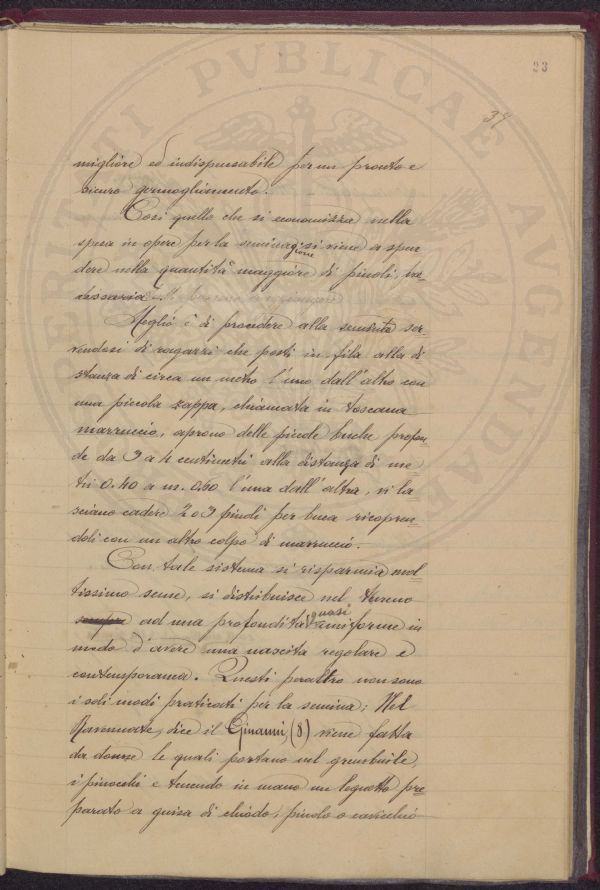 23
39
migliore ed indispensabile per un pronto e
sicuro germogliamento.
Così quello che si economizza nella
spesa in opere per la seminagione si viene a spen=
dere nella quantità maggiore di pinoli, ne=
cessaria
Meglio è di procedere alla sementa ser=
vendosi di ragazzi che posti in fila alla di
stanza di circa un metro l'uno dall'altro con
una piccola zappa, chiamata in Toscana
marruccio, aprono delle piccole buche profon=
de da 3 a 4 centimetri alla distanza di me=
tri 0.40 a m. 0.60 l'una dall'altra, vi la
sciano cadere 2 o 3 pinoli per buca ricopren=
doli con un altro colpo di marruccio.
Con tale sistema si risparmia mol=
tissimo seme, si distribuisce nel terreno
sempre ad una profondità quasi uniforme in
modo d'avere una nascita regolare e
contemporanea. Questi peraltro non sono
i soli modi praticati per la semina; Nel
Ravennate, dice il Ginanni (8) viene fatta
da donne le quali portano nel grembiule
i pinocchi e tenendo in mano un legnetto pre=
parato a guisa di chiodo, piuolo o cavicchio
PVBLICAE AVGENDAE